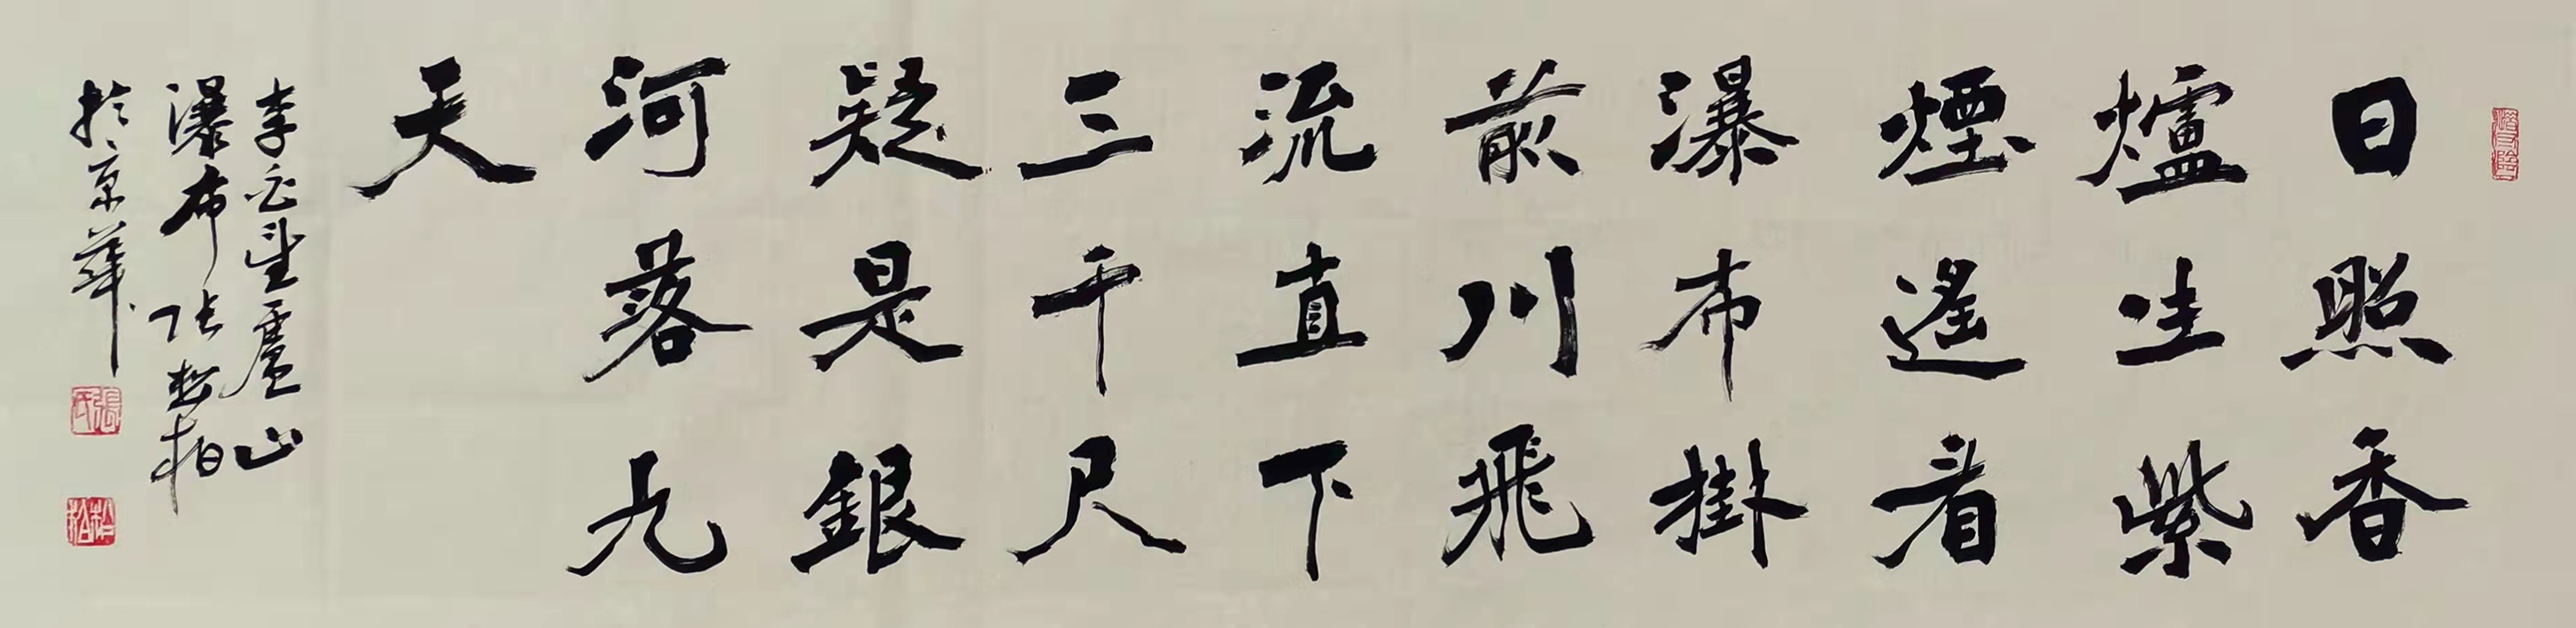 日照香
爐生紫
煙遙看
瀑布掛
前川飛
流直下
三千尺
疑是銀
河落九
天
李白望廬山
瀑布張松柏
於京華
張氏